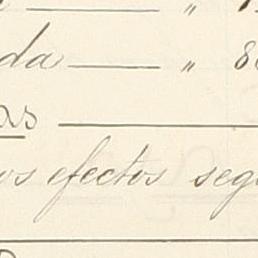 da — " 8
as
os efectos segu